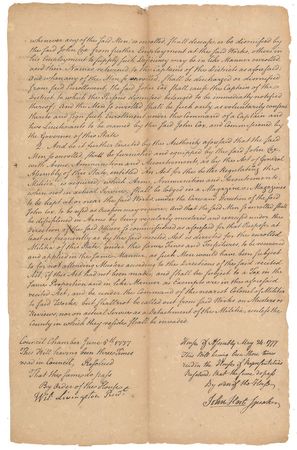 whenever any of the said Men, so enrolled, shall decease or be dismissed by
the said John Cox from further Employment at the said Works, others in
his Employment to supply such Deficiency may be in like Manner enrolled
and their Names returned to the Captains of the Districts as aforesaid.
And when any of the Men so enrolled, shall be discharged or dismissed
from said Enrollment, the said Cox shall cause the Captain of the
District to which the Person discharged belongs to be immediately notified
thereof. And the Men so enrolled shall be such only as voluntarily consent
thereto and sign such Enrollment under the Command of a Captain and
two Lieutenants to be named by the said John Cox, and commissioned by
the Governor of this State
2. And be it further Enacted by the Authority aforesaid that the said
Men so enrolled, shall be furnished and equipped by the said John Cox
with Arms, Ammunition and Accoutrements, as by the Act of General
Assembly of this State, entitled An Act for the better Regulating the
Militia, is required; which Arms, Ammunition and Accoutrements
when not in actual Service, shall be lodged in a Magazine or Magazines
to be kept at or near the said Works under the Care and Direction of the said
John Cox, to be used as Occasion may require; and that the said Men enrolled shall
be disciplined in Arms by being regularly mustered and exercised under the
Direction of the said Officers, so commissioned as aforesaid for that Purpose at
least as frequently as by the said recited Act is directed for the enrolled
Militia of this State, under the same Fines and Forfeitures, to be recovered
and applied in the same Manner, as such Men would have been subject
to for not attending Musters according to the Directions of the said recited
Act, if this Act had not been made, and shall be subject to a Tax in the
same Proportion, and in like Manner as Exempts are in the aforesaid
recited Act, and be under the Command of the nearest Colonel of Militia
to said Works, but shall not be called out from said Works on Musters or
Reviews, nor on actual Service as a Detachment of the Militia, except the
County in which they reside shall be invaded.
Council Chamber June 5th 1777
This Bill having been three Times
read in Council, Resolved
That the same do pass
By Order of the House
Wil. Livingston Presidt.
House of Assembly May 24, 1777
This Bill having been three times
read in the House of Representatives
Resolved, that the same do pass
By order of the House,
John Hart Speaker